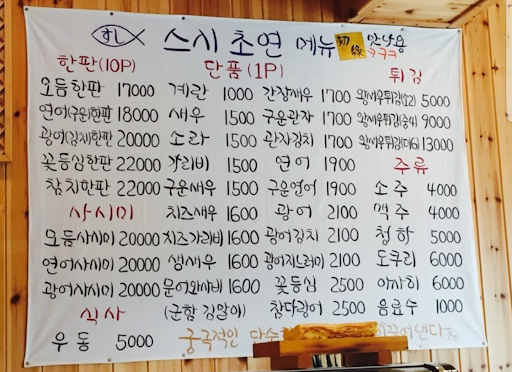 すし 스시 초연 메뉴 初緣 맛나용
ㅋㅋㅋ
한판(10P)
모듬한판 17000
연어(구운)한판 18000
광어(김치)한판 20000
꽃등심한판 22000
참치한판 22000
사시미
모듬사시미 20000
연어사시미 20000
광어사시미 20000
식사
우동 5000
단품(1P)
계란 1000
새우 1500
소라 1500
가리비 1500
구운새우 1500
치즈새우 1600
치즈가리비 1600
생새우 1600
문어와사비 1600
(군함 김말이)
간장새우 1700
구운관자 1700
관자김치 1700
연어 1900
구운연어 1900
광어 2100
광어김치 2100
광어지느러미 2100
꽃등심 2500
참다랑어 2500
튀김
왕새우튀김(소2) 5000
왕새우튀김(중4) 9000
왕새우튀김(대6) 13000
주류
소주 4000
맥주 4000
청하 5000
도쿠리 6000
아사히 6000
음료수 1000
궁극적인 단순
끌어낸다